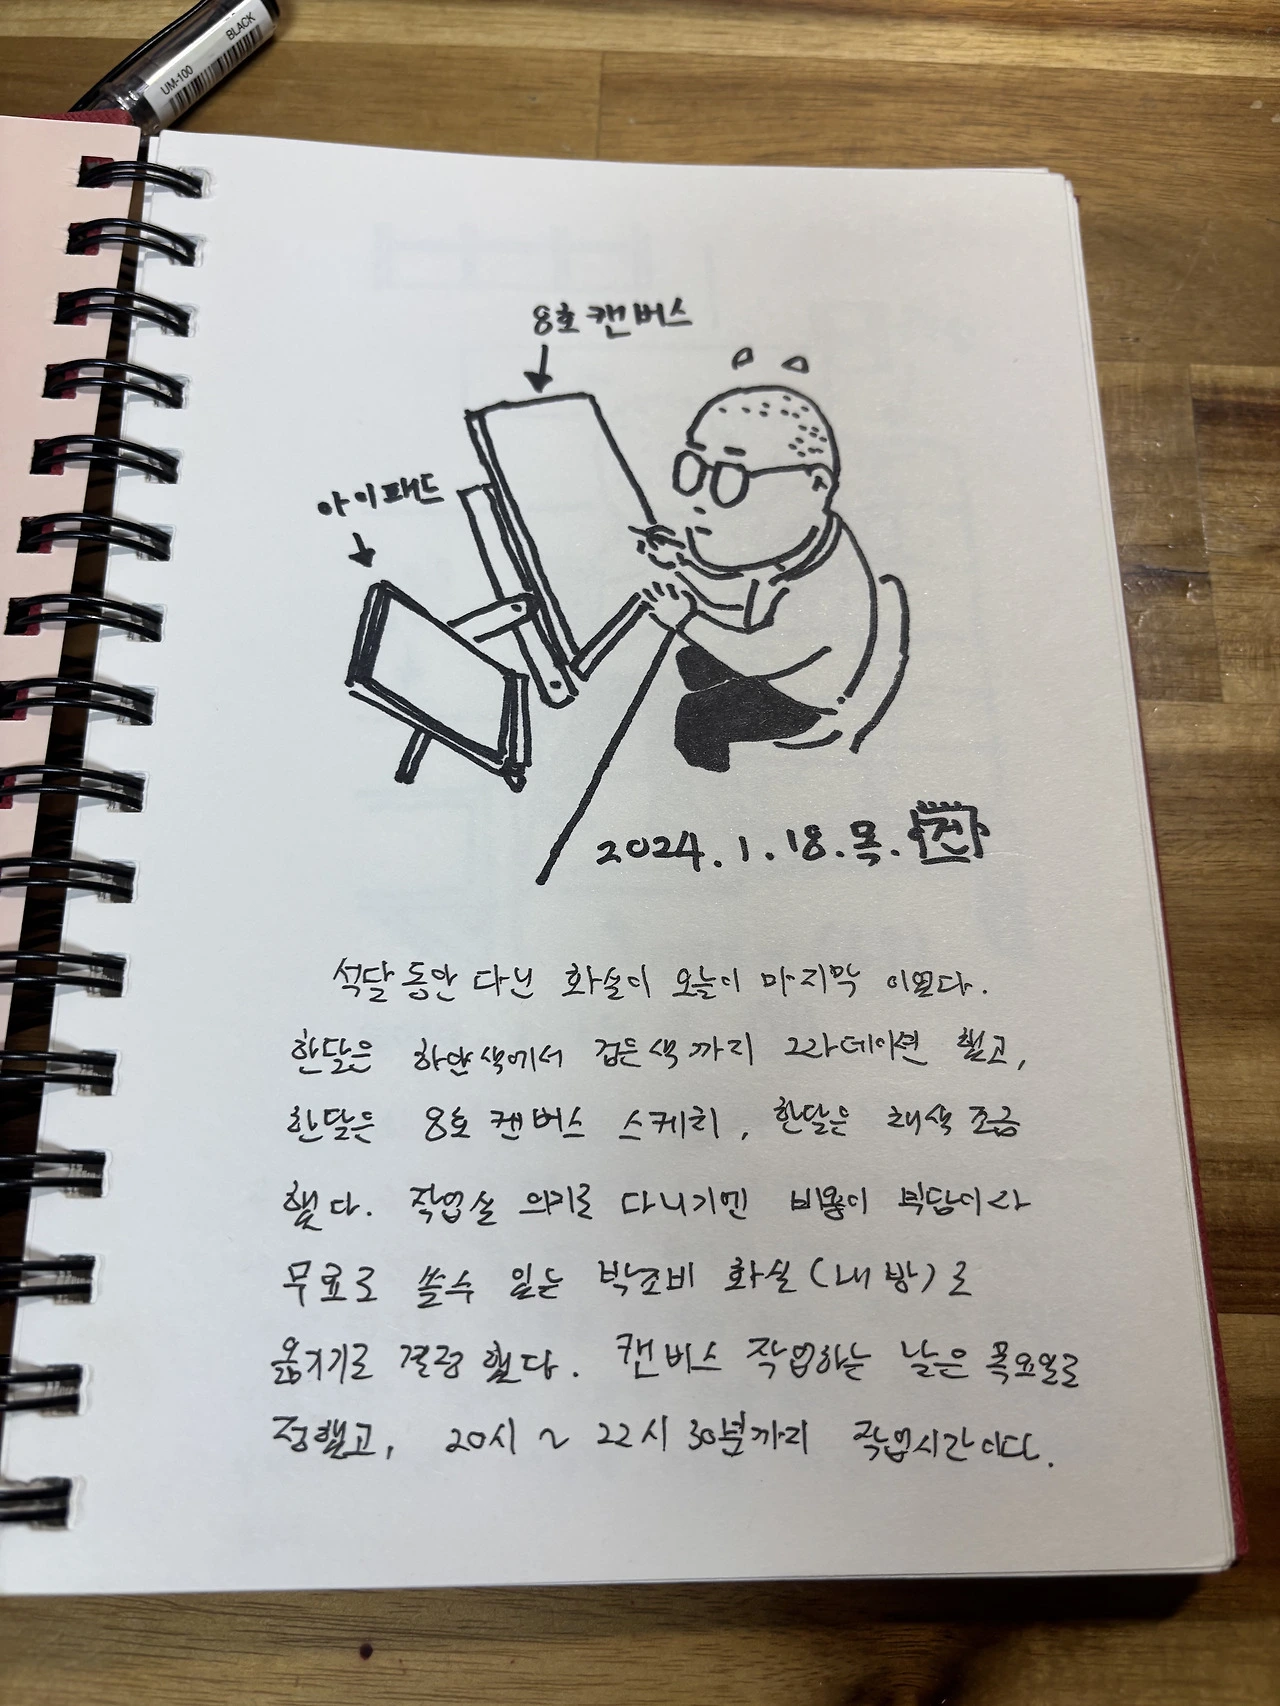 BLACK
UM-100
8호 캔버스
아이패드
2024. 1. 18. 목.
석달 동안 다닌 화실이 오늘이 마지막 이였다.
한달은 하얀색에서 검은색까지 그라데이션 했고,
한달은 8호 캔버스 스케치, 한달은 채색 조금
했다. 작업실 의기로 다니기엔 비용이 부담이라
무료로 쓸수 있는 박조비 화실(내 방)로
옮기기로 결정 했다. 캔버스 작업하는 날은 목요일로
정했고, 20시 ~ 22시 30분까지 작업시간이다.